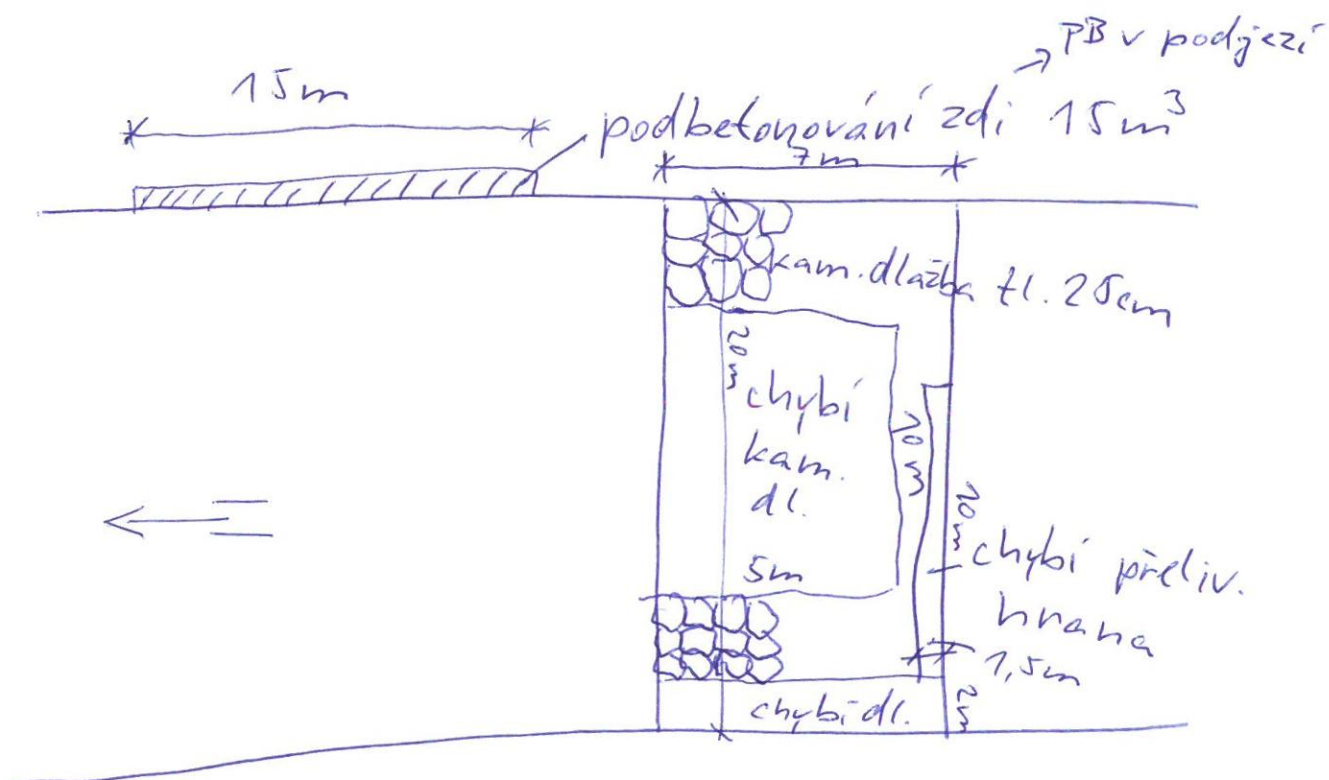 PB v podjezí
15m
podbetonování zdi 15m³
7m
kam. dlažba tl. 25cm
20m
chybí
kam.
dl.
10m
10m
5m
chybí přeliv.
hrana
1,5m
chybí dl.
2m